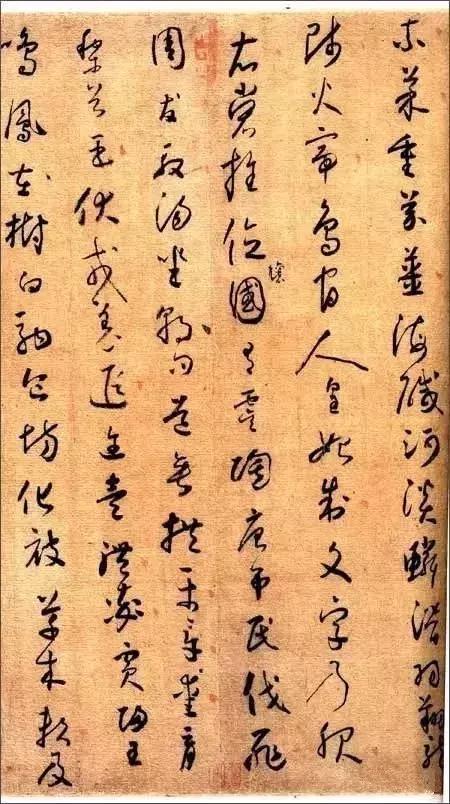 柰菜重芥薑海醎河淡鱗潛羽翔龍
師火帝鳥官人皇始制文字乃服
衣裳推位讓國有虞陶唐弔民伐罪
周發殷湯坐朝問道垂拱平章愛育
黎首臣伏戎羌遐邇壹體率賓歸王
鳴鳳在樹白駒食場化被草木賴及